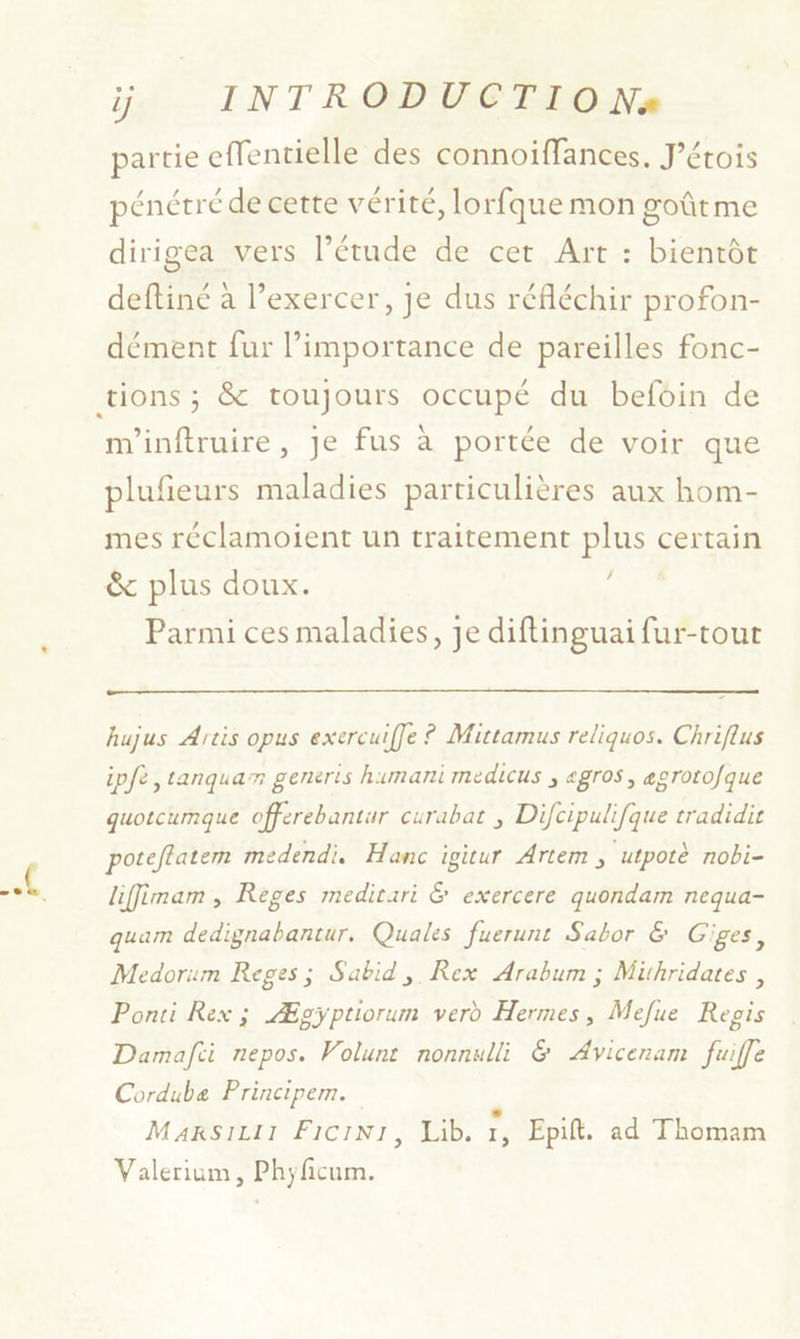 ij INTRODUCTION.
partie eſſentielle des connoiſſances. J’étois
pénétré de cette vérité, lorſque mon goût me
dirigea vers l’étude de cet Art : bientôt
deſtiné à l’exercer, je dus réfléchir profon-
dément ſur l’importance de pareilles fonc-
tions ; & toujours occupé du beſoin de
m’inſtruire , je fus à portée de voir que
pluſieurs maladies particulières aux hom-
mes réclamoient un traitement plus certain
& plus doux.
Parmi ces maladies, je diſtinguai ſur-tout
hujus Artis opus exercuiſſe ? Mittamus reliquos. Chriſtus
ipſe, tanquam generis humani medicus , ægros, ægrotoſque
quotcumque offerebantur curabat , Diſcipuliſque tradidit
poteſtatem medendi. Hanc igitur Artem , utpotè nobi-
liſſimam , Reges meditari & exercere quondam nequa-
quam dedignabantur. Quales fuerunt Sabor & Giges,
Medorum Reges ; Sabid , Rex Arabum ; Mithridates ,
Ponti Rex ; Ægyptiorum verò Hermes, Meſue Regis
Damaſci nepos. Volunt nonnulli & Avicenam fuiſſe
Cordubæ Principem.
MARSILII FICINI, Lib. 1, Epiſt. ad Thomam
Valerium, Phyſicum.